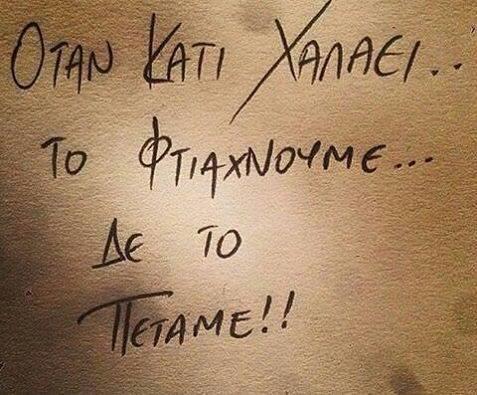 ΟΤΑΝ ΚΑΤΙ ΧΑΛΑΕΙ..
ΤΟ ΦΤΙΑΧΝΟΥΜΕ...
ΔΕ ΤΟ
ΠΕΤΑΜΕ!!